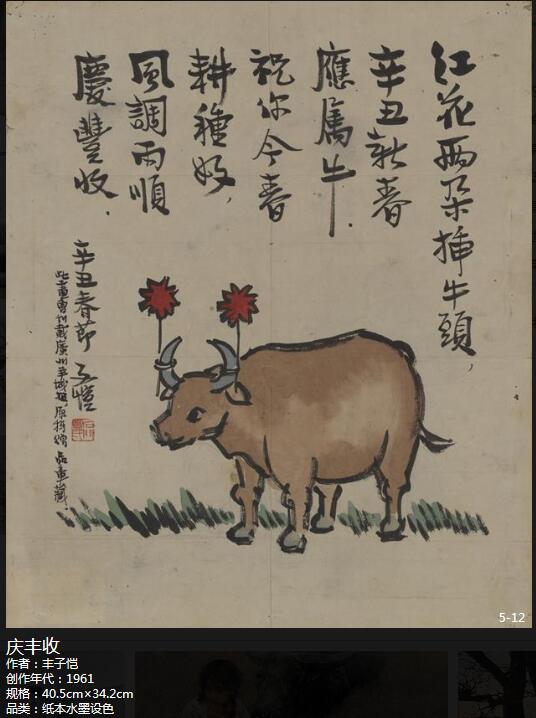 红花兩朵插牛頭，
辛丑新春
應屬牛．
祝你今春
耕種好，
風調雨順
慶豐收．
辛丑春節 子愷
此畫曾刊載廣州羊城晚報原稿贈
5-12
庆丰收
作者：丰子恺
创作年代：1961
规格：40.5cm×34.2cm
品类：纸本水墨设色